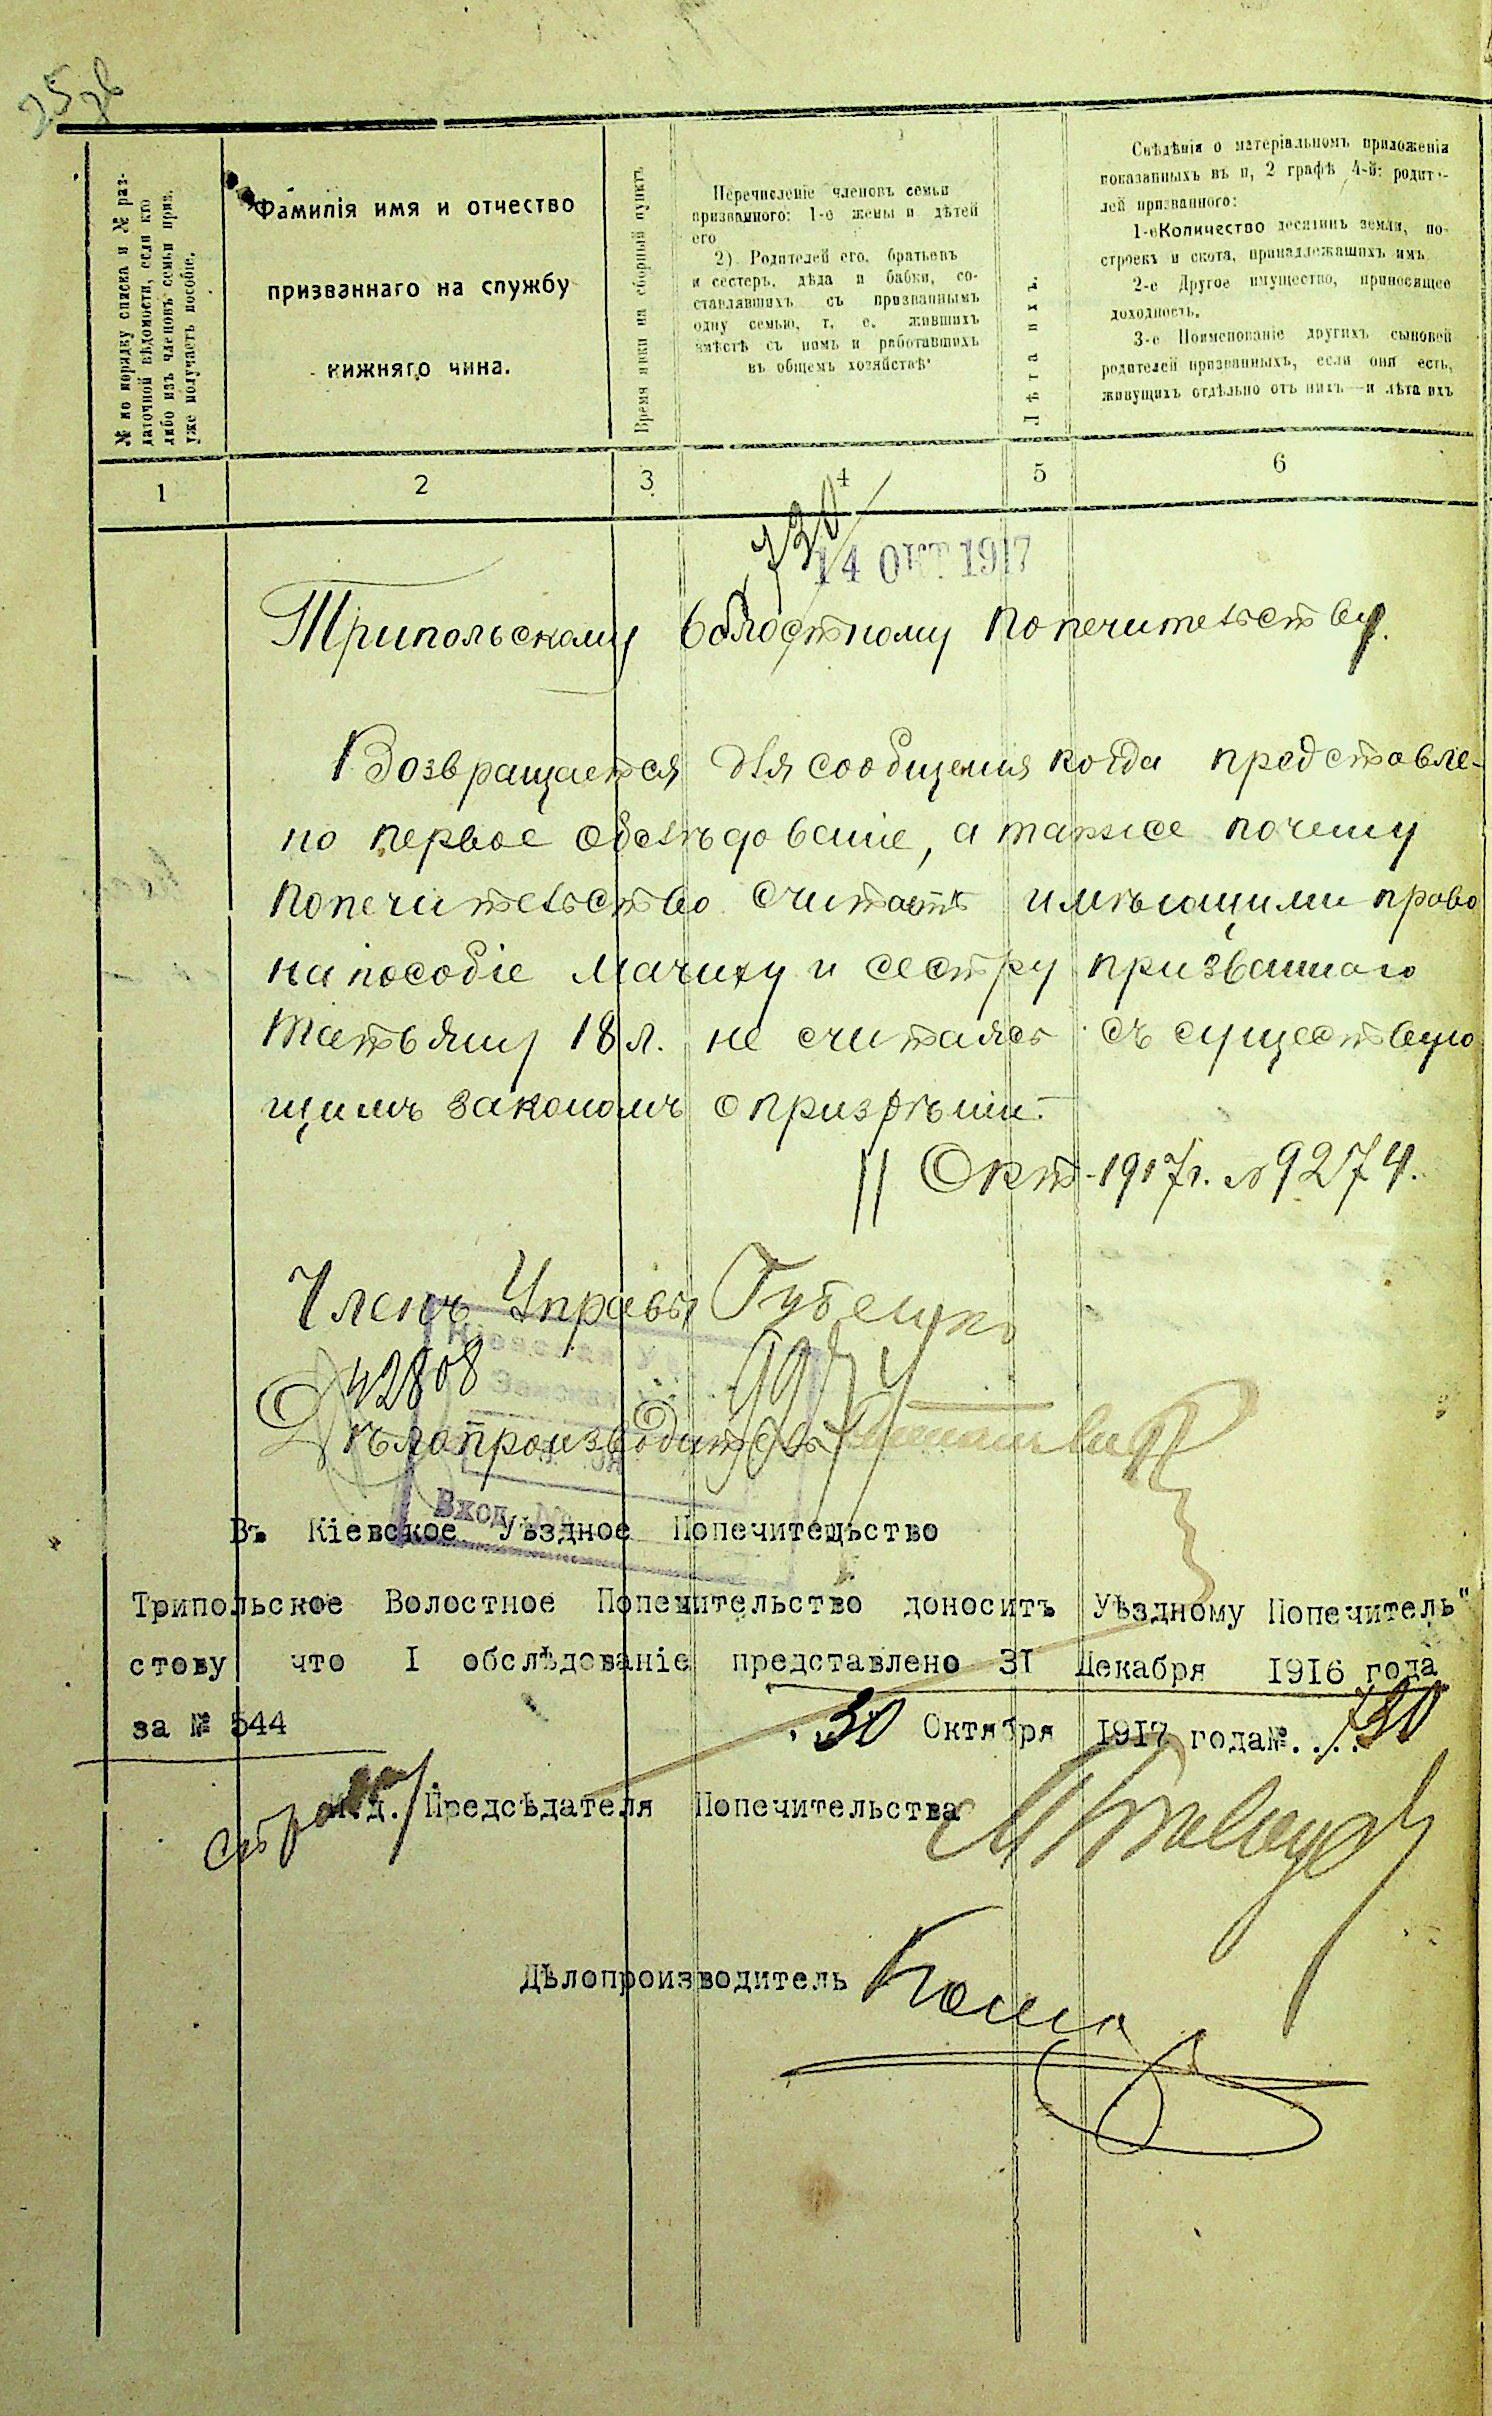 № по порядку списка и № раз-
даточной вѣдомости, если кто
либо изъ членовъ семьи приз.
уже получаетъ пособіе.
Фамилія имя и отчество
призваннаго на службу
нижняго чина.
Время явки на сборный пунктъ
Перечисленіе членовъ семьи
призваннаго: 1-е жены и дѣтей
его
2) Родителей его, братьевъ
и сестеръ, дѣда и бабки, со-
ставлявшихъ съ призваннымъ
одну семью, т. е. жившихъ
вмѣстѣ съ нимъ и работавшихъ
въ общемъ хозяйствѣ
Лѣта ихъ.
Свѣдѣнія о матеріальномъ приложенія
показанныхъ въ п, 2 графѣ 4-й: родите-
лей призваннаго:
1-е Количество десятинъ земли, по-
строекъ и скота, принадлежащихъ имъ
2-е Другое имущество, приносящее
доходность.
3-е Поименованіе другихъ сыновей
родителей призванныхъ, если они есть,
живущихъ отдѣльно отъ нихъ—и лѣта ихъ
1 2 3 4 5 6
730
14 ОКТ 1917
Трипольскому волостному попечительству.
Возвращается для сообщенія когда представле-
но первое обслѣдованіе, а также почему
попечительство считаетъ имѣющими право
на пособіе мачиху и сестру призваннаго
Татьяну 18 л. не считаясь съ существую
щимъ закономъ о призрѣніи.
11 Окт. 1917 г. № 9274.
Членъ Управы
42808
Дѣлопроизводитель
Вход. №
Въ Кіевское Уѣздное Попечитещьство
Трипольское Волостное Попечительство доноситъ Уѣздному Попечитель"
стову что I обслѣдованіе представлено 31 Декабря 1916 года
за № 544
30 Октября 1917 года №....730
И.д. Предсѣдателя Попечительства
Дѣлопроизводитель